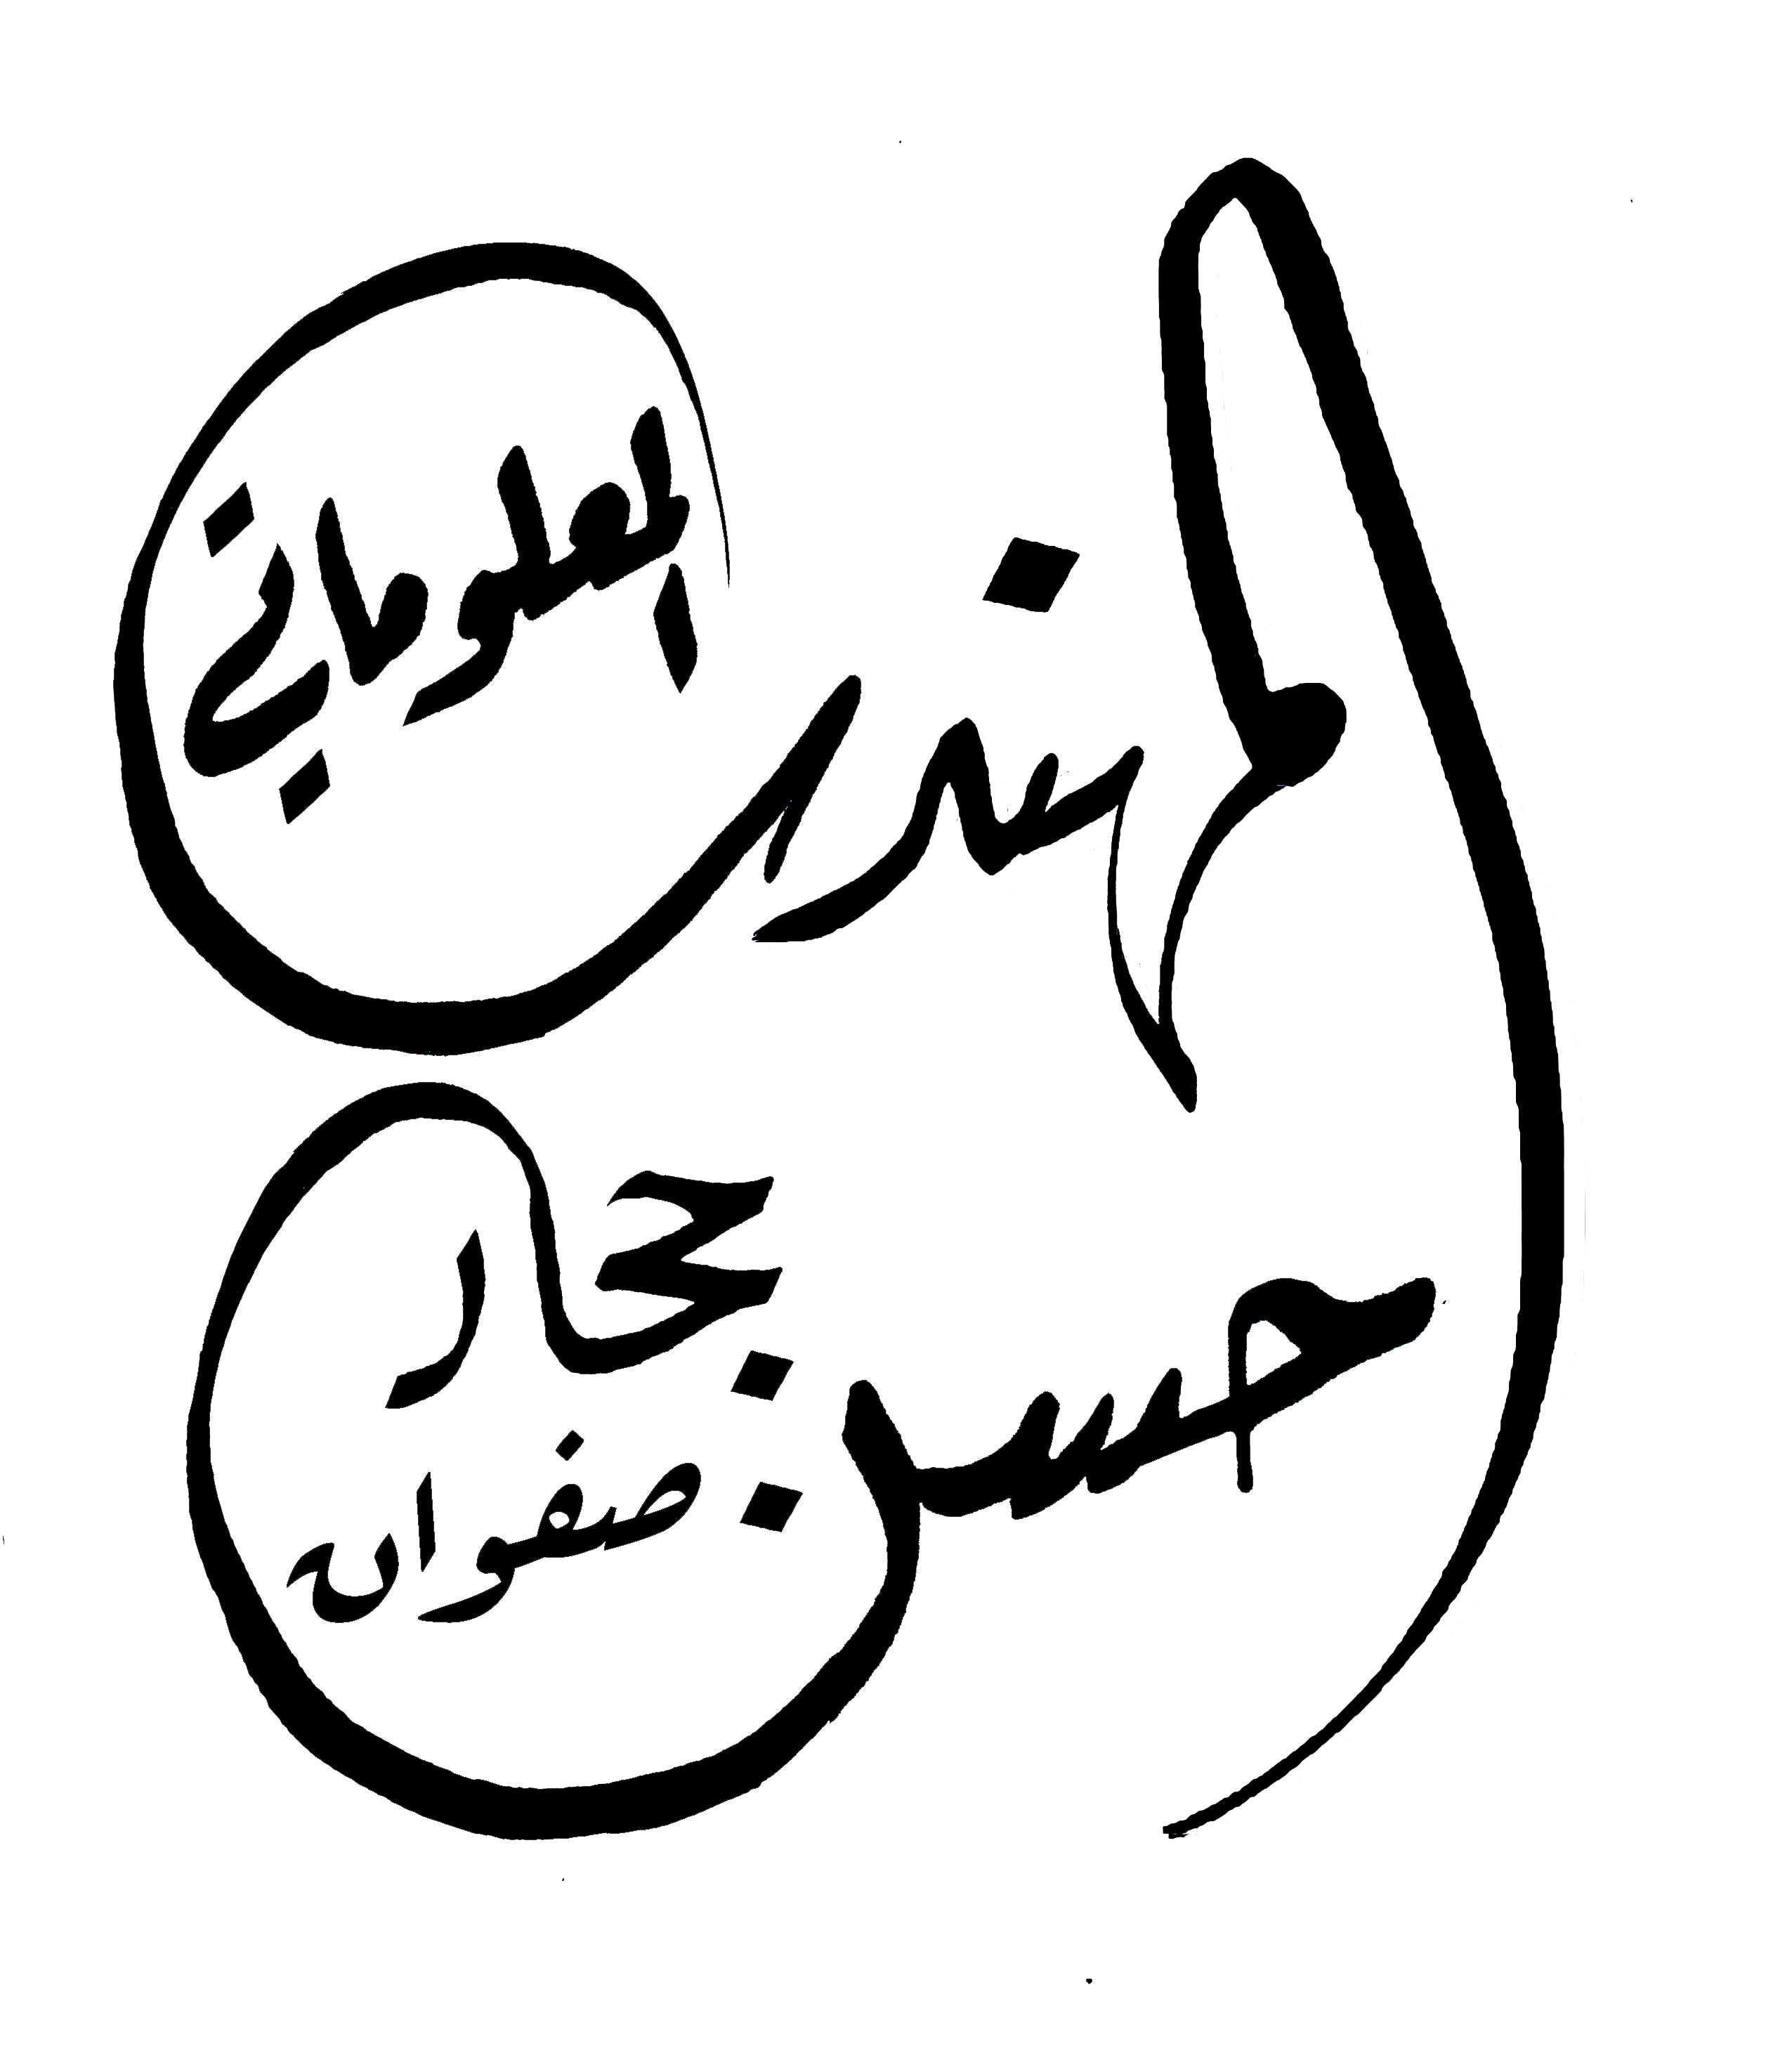 المهندس
المعلوماتي
حسين حجار
صفوان